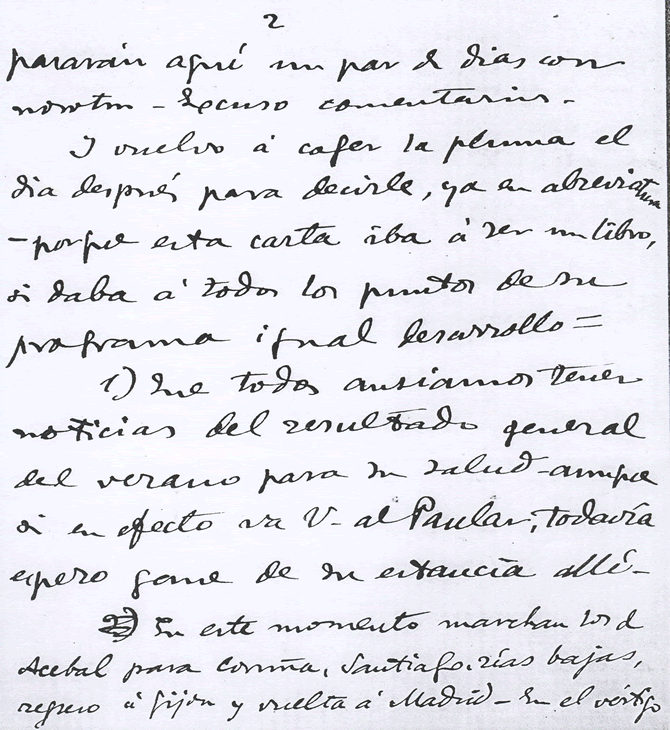 2
pararán aquí un par de dias con
nosotros - Excuso comentarios -
Y vuelvo á coger la pluma el
dia después para decirle, ya en abreviatura
- porque esta carta iba á ser un libro,
si daba á todos los puntos de su
programa igual desarrollo =
1) Que todos ansiamos tener
noticias del resultado general
del verano para su salud - aunque
si en efecto va V. al Paular, todavía
espero gane de su estancia allí -
2) En este momento marchan los de
Acebal para Coruña, Santiago, rías bajas,
regreso á Gijon y vuelta á Madrid - En el vértigo